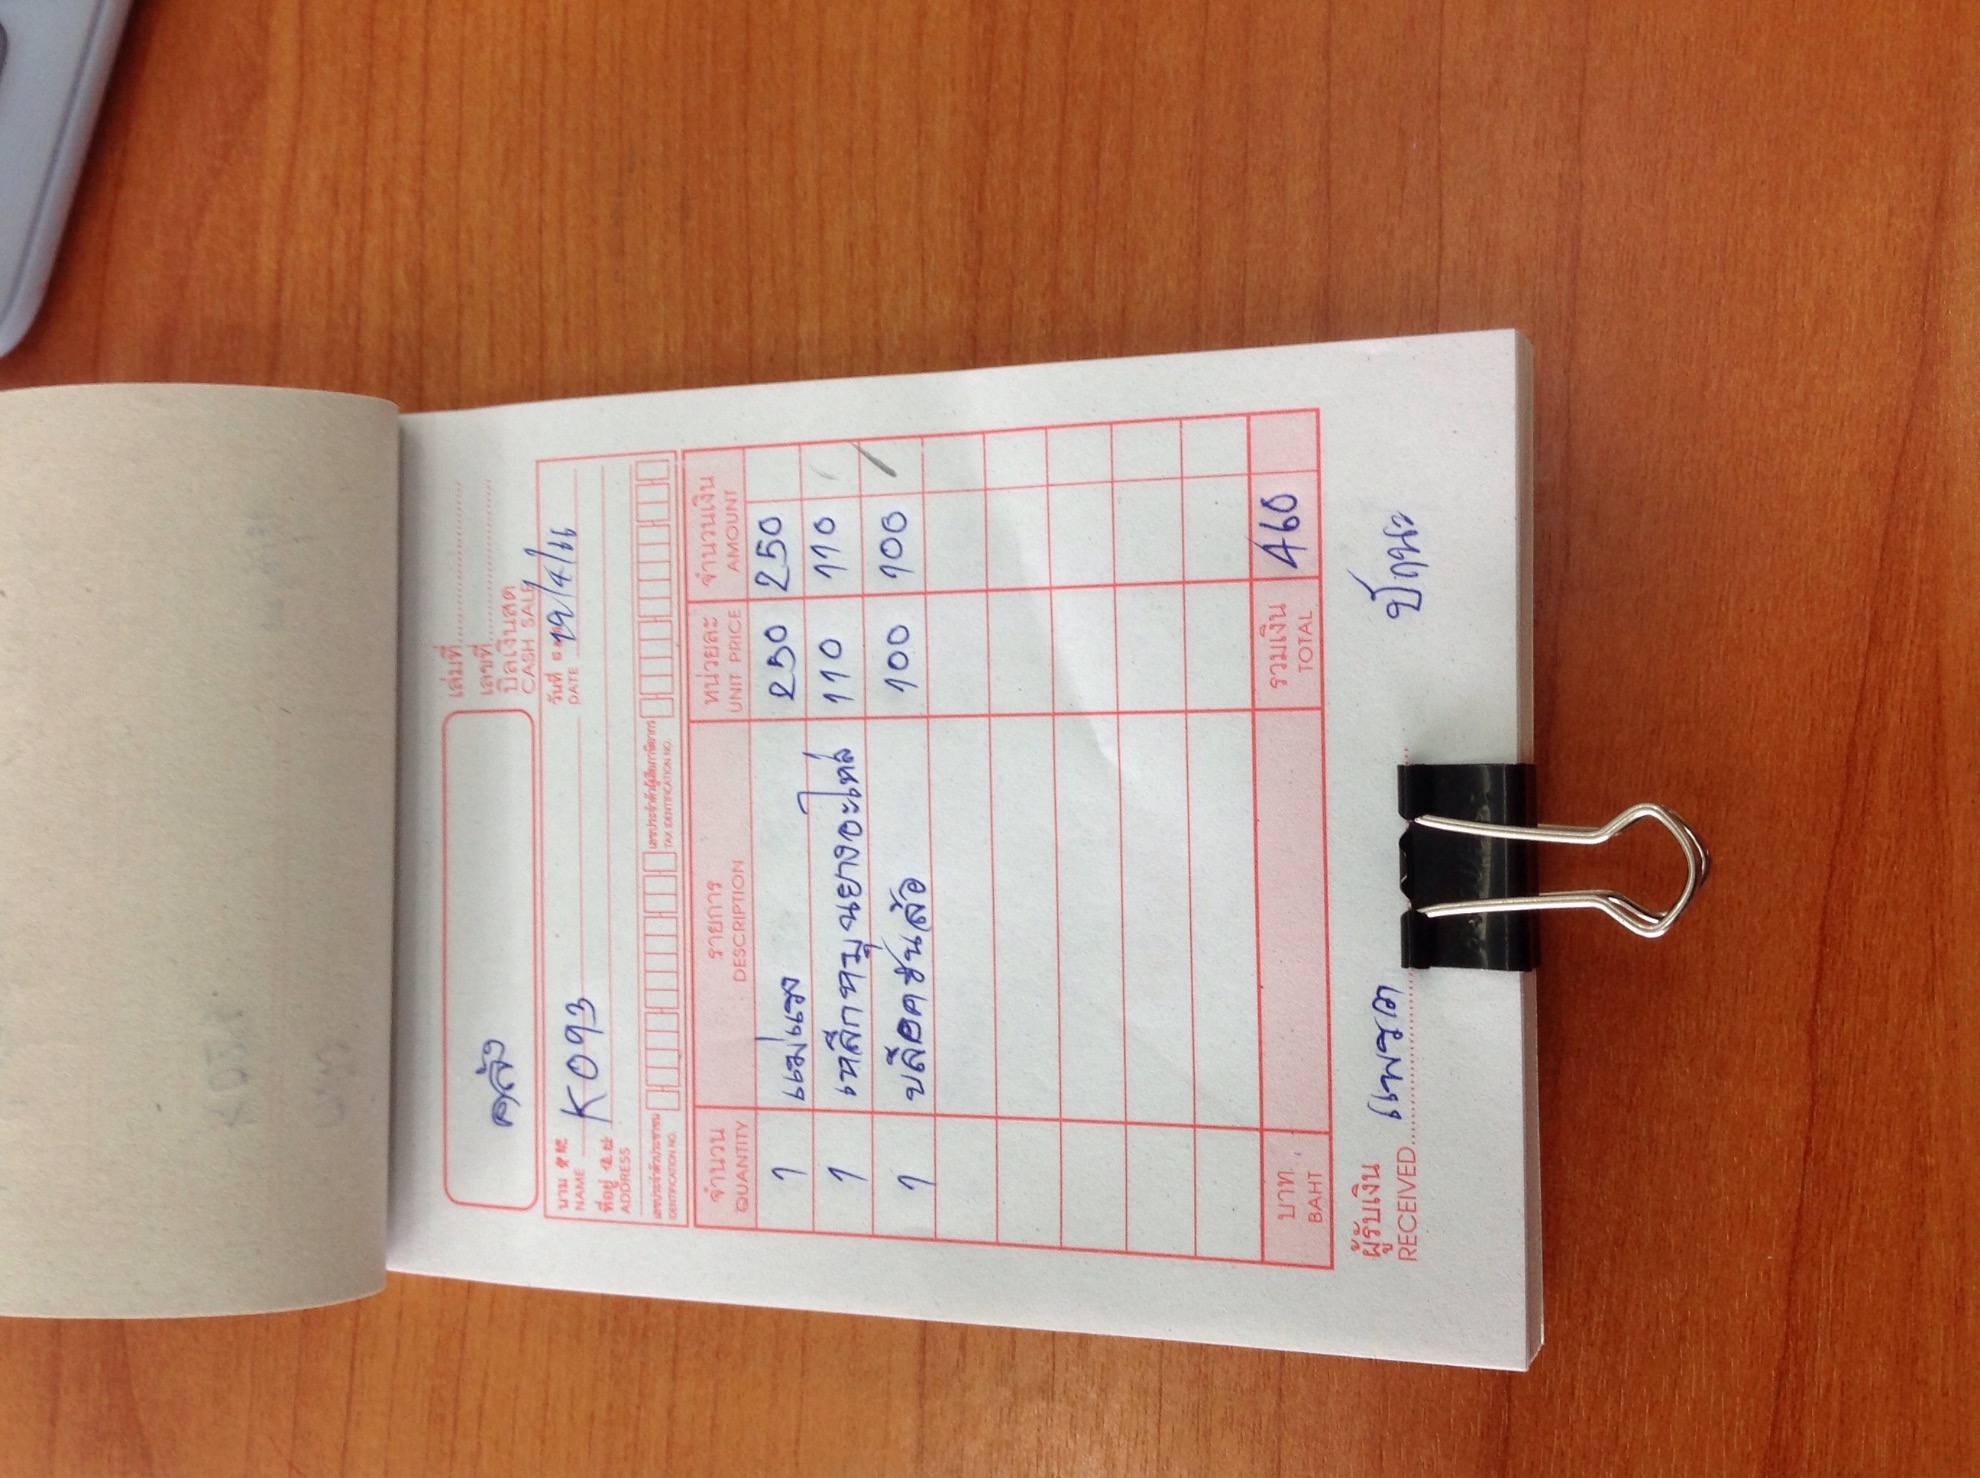 เล่มที่
เลขที่
บิลเงินสด
CASH SALE
คลัง
นาม
NAME K093
วันที่
DATE 19/4/66
ที่อยู่
ADDRESS
เลขประจำตัวประชาชน
IDENTIFICATION NO.
เลขประจำตัวผู้เสียภาษีอากร
TAX IDENTIFICATION NO.
จำนวน รายการ หน่วยละ จำนวนเงิน
QUANTITY DESCRIPTION UNIT PRICE AMOUNT
1 แม่แรง 250 250
1 เหล็กหมุนยางอะไหล่ 110 110
1 บล๊อคขันล้อ 100 100
บาท รวมเงิน 460
BAHT TOTAL
ผู้รับเงิน
RECEIVED